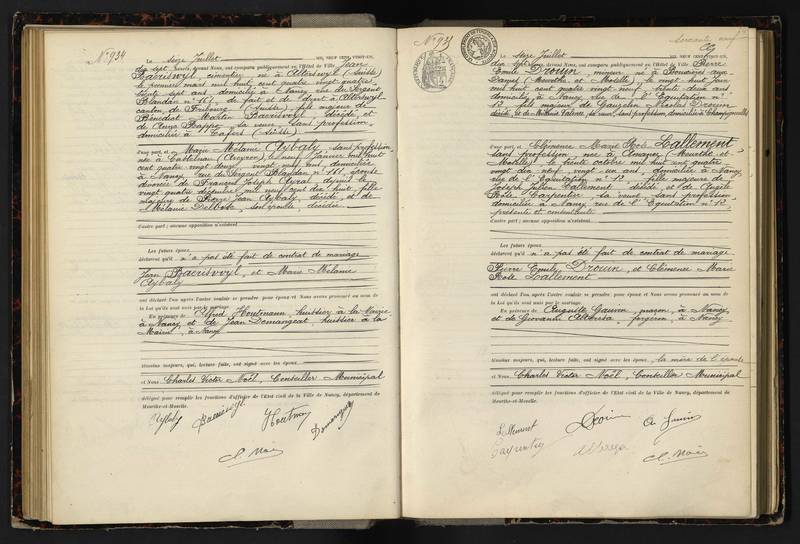 N° 934
Le Seize Juillet mil neuf cent vingt-un,
dix sept heures, devant Nous, ont comparu publiquement en l'Hôtel de Ville Jean
Baeriswyl, cimentier, né à Alterswyl (Suisse)
le premier mars mil huit cent quatre vingt quatre
trente sept ans, domicilié à Nancy, rue du Sergent
Blandan n° 161, de fait et de droit à Alterswyl
canton de Fribourg (Suisse), fils majeur de
Bénédict Martin Baeriswyl, décédé, et
de Anne Rappo, sa veuve, sans profession,
domiciliée à Tafers (Suisse)
d'une part, et Marie Mélanie Aybaly, sans profession
née à Castelnau (Aveyron), le neuf Janvier mil huit
cent quatre vingt douze, vingt neuf ans, domiciliée
à Nancy, rue du Sergent Blandan n° 161, épouse
divorcée de François Joseph Ayral depuis le
quatre décembre mil neuf cent dix huit, fille
majeure de Pierre Jean Aybaly, décédé, et de
Mélanie Delbosc, son épouse, décédée
d'autre part ; aucune opposition n'existant.
Les futurs époux
déclarent qu'il n'a pas été fait de contrat de mariage
Jean Baeriswyl, et Marie Mélanie
Aybaly
ont déclaré l'un après l'autre vouloir se prendre pour époux et Nous avons prononcé au nom de
la Loi qu'ils sont unis par le mariage.
En présence de Alfred Houtmann, huissier à la Mairie
à Nancy et de Jean Domangeat, huissier à la
Mairie, à Nancy
témoins majeurs, qui, lecture faite, ont signé avec les époux
et Nous Charles Victor Noël, Conseiller Municipal
délégué pour remplir les fonctions d'officier de l'Etat civil de la Ville de Nancy, département de
Meurthe-et-Moselle.
Aybaly Baeriswyl Houtmann Domangeat
C. Noël
N° 935
Le Seize Juillet mil neuf cent vingt-un,
dix heures, devant Nous, ont comparu publiquement en l'Hôtel de Ville Pierre
Emile Drouin, mineur, né à Bouxières aux
Dames (Meurthe et Moselle), le vingt huit Juin
mil huit cent quatre vingt neuf, trente deux ans
domicilié à Nancy, rue de l'Equitation n°
12, fils majeur de Gauzelin Nicolas Drouin
décédé, et de sa veuve, sans profession, domiciliée à Champigneulles
d'une part, et Clémence Marie Rose Lallement
sans profession, née à (Meurthe et
Moselle), le trente octobre mil huit cent quatre
vingt dix neuf, vingt un ans, domiciliée à Nancy
rue de l'Equitation n° 12, fille majeure de
Joseph Julien Lallement, décédé, et de
Carpentier, sa veuve, sans profession
domiciliée à Nancy rue de l'Equitation n° 12,
présente et consentante
d'autre part ; aucune opposition n'existant.
Les futurs époux
déclarent qu'il n'a pas été fait de contrat de mariage
Pierre Emile Drouin, et Clémence Marie
Rose Lallement
ont déclaré l'un après l'autre vouloir se prendre pour époux et Nous avons prononcé au nom de
la Loi qu'ils sont unis par le mariage.
En présence de Auguste maçon, à Nancy
et de Giovanni forgeron, à Nancy
témoins majeurs, qui, lecture faite, ont signé avec les époux, la mère de l'épouse
et Nous Charles Victor Noël, Conseiller Municipal
délégué pour remplir les fonctions d'officier de l'Etat civil de la Ville de Nancy, département de
Meurthe-et-Moselle.
Lallement Drouin
C. Noël